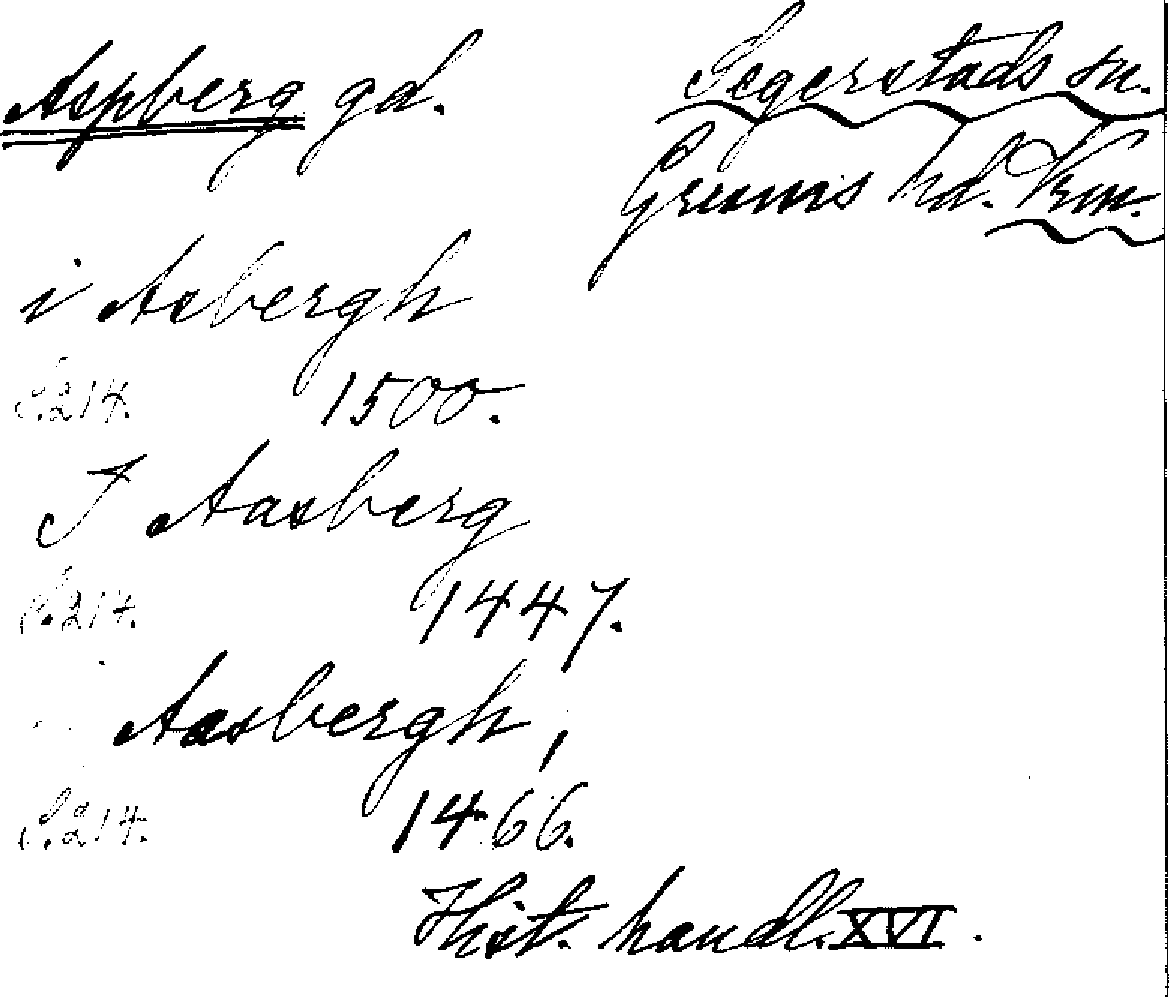 Aspberg gd.
Segerstads sn.
Grums hd. Vrm.
i Asbergh
S.214. 1500.
I Aasberg
S.214. 1447.
Aasbergh,
S.214. 1466.
Hist. handl. XVI.